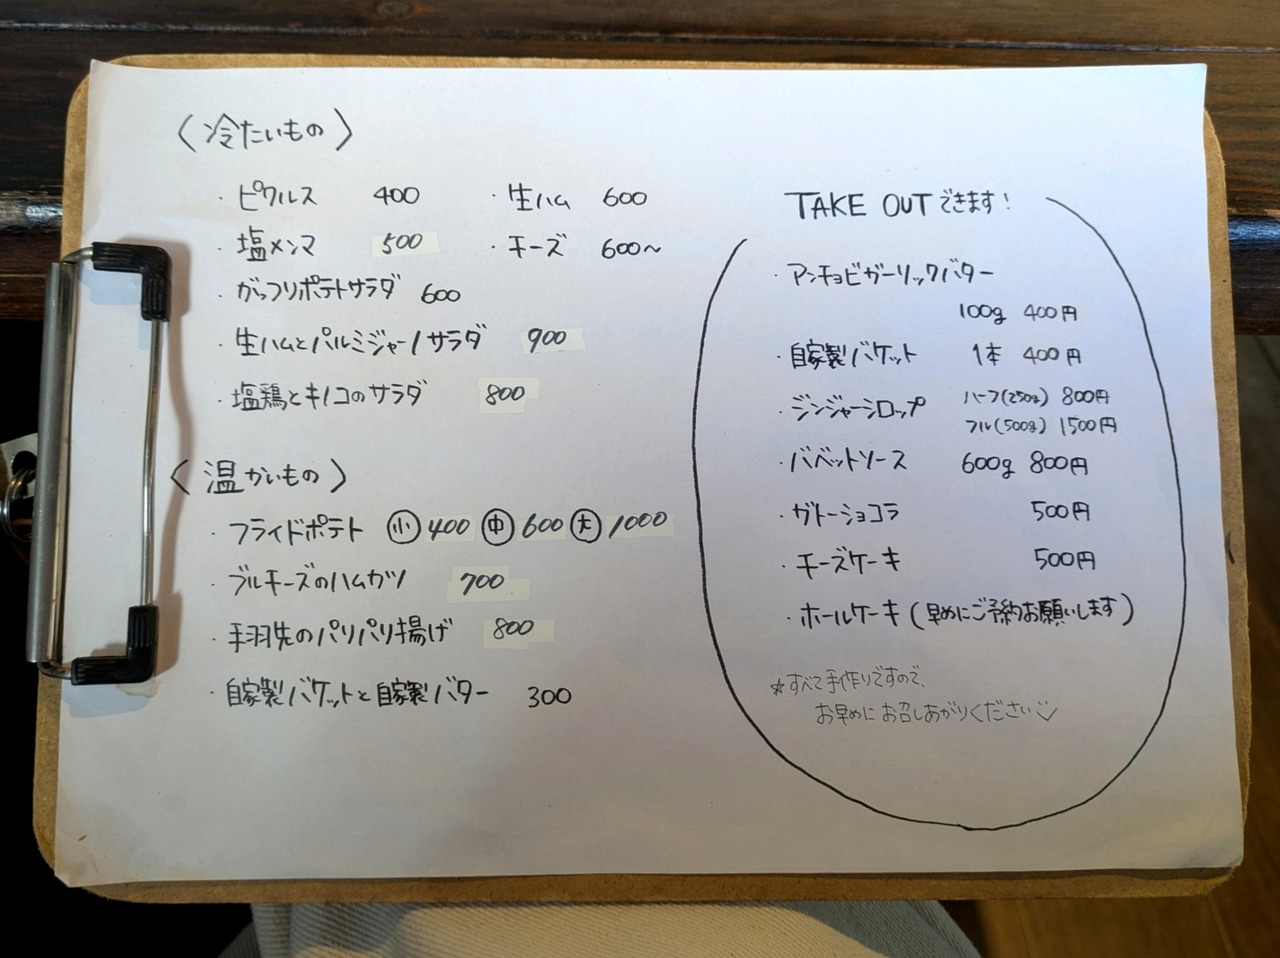 〈冷たいもの〉
・ピクルス 400 ・生ハム 600
・塩メンマ 500 ・チーズ 600〜
・がっつりポテトサラダ 600
・生ハムとパルミジャーノサラダ 900
・塩鶏とキノコのサラダ 800
〈温かいもの〉
・フライドポテト ㊙小 400 ㊥ 600 大 1000
・ブルチーズのハムカツ 700
・手羽先のパリパリ揚げ 800
・自家製バケットと自家製バター 300
TAKE OUTできます!
・アンチョビガーリックバター
100g 400円
・自家製バケット 1本 400円
・ジンジャーシロップ ハーフ(250g) 800円
フル(500g) 1500円
・バベットソース 600g 800円
・ガトーショコラ 500円
・チーズケーキ 500円
・ホールケーキ(早めにご予約お願いします)
☆すべて手作りですので、
お早めにお召しあがりください